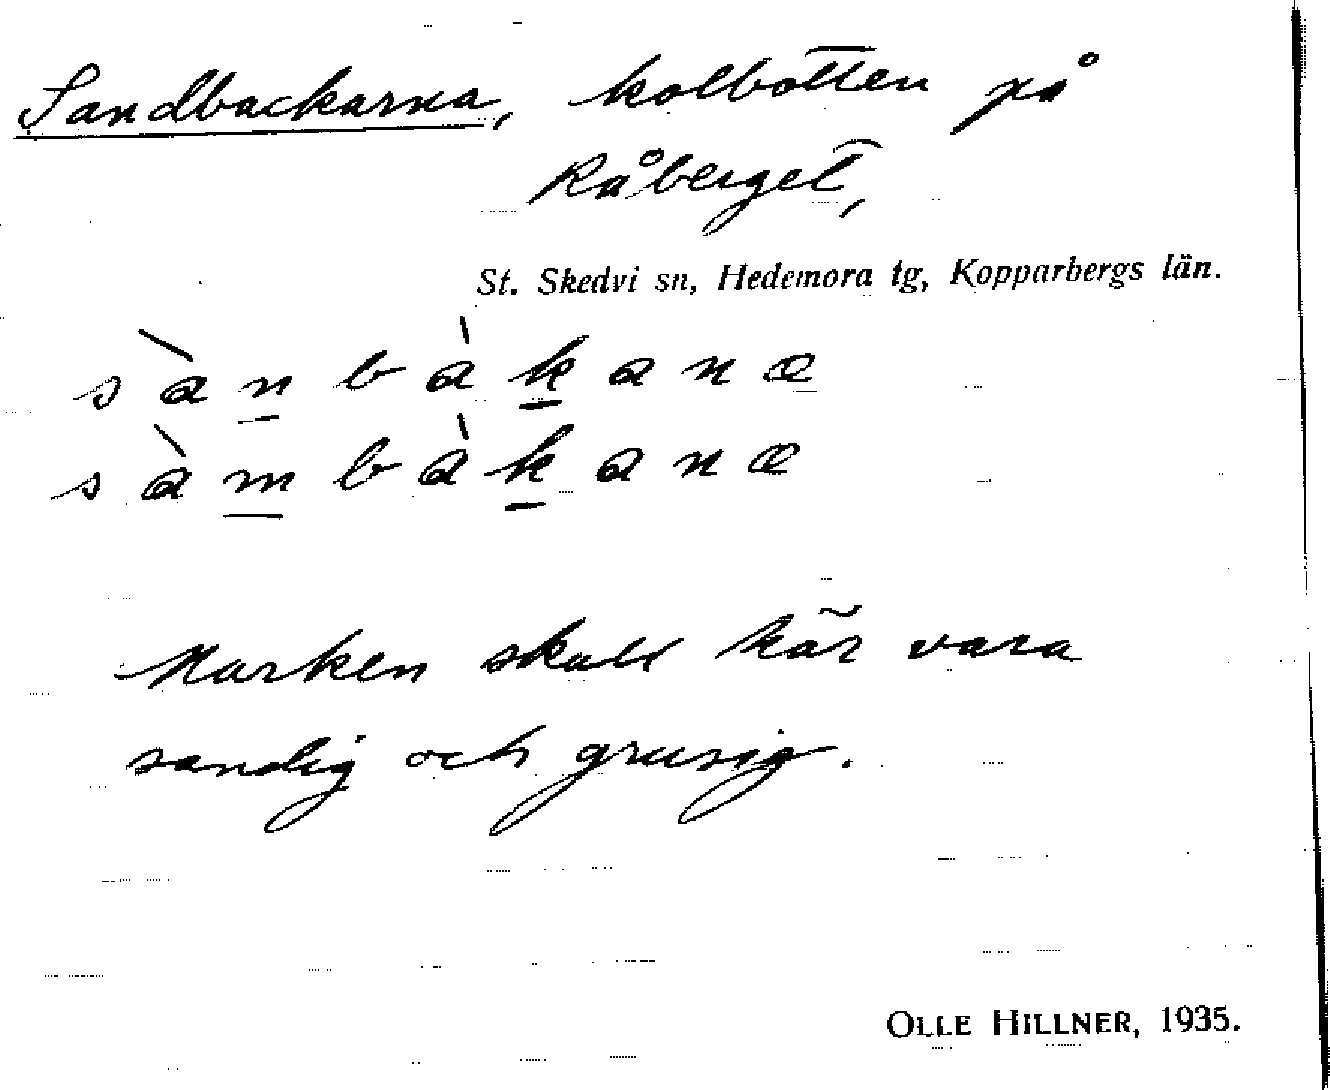 Sandbackarna, kolbotten på
Råberget,
St. Skedvi sn, Hedemora tg, Kopparbergs län.
sànbàkanæ
sàmbàkanæ
Marken skall här vara
sandig och grusig.
OLLE HILLNER, 1935.